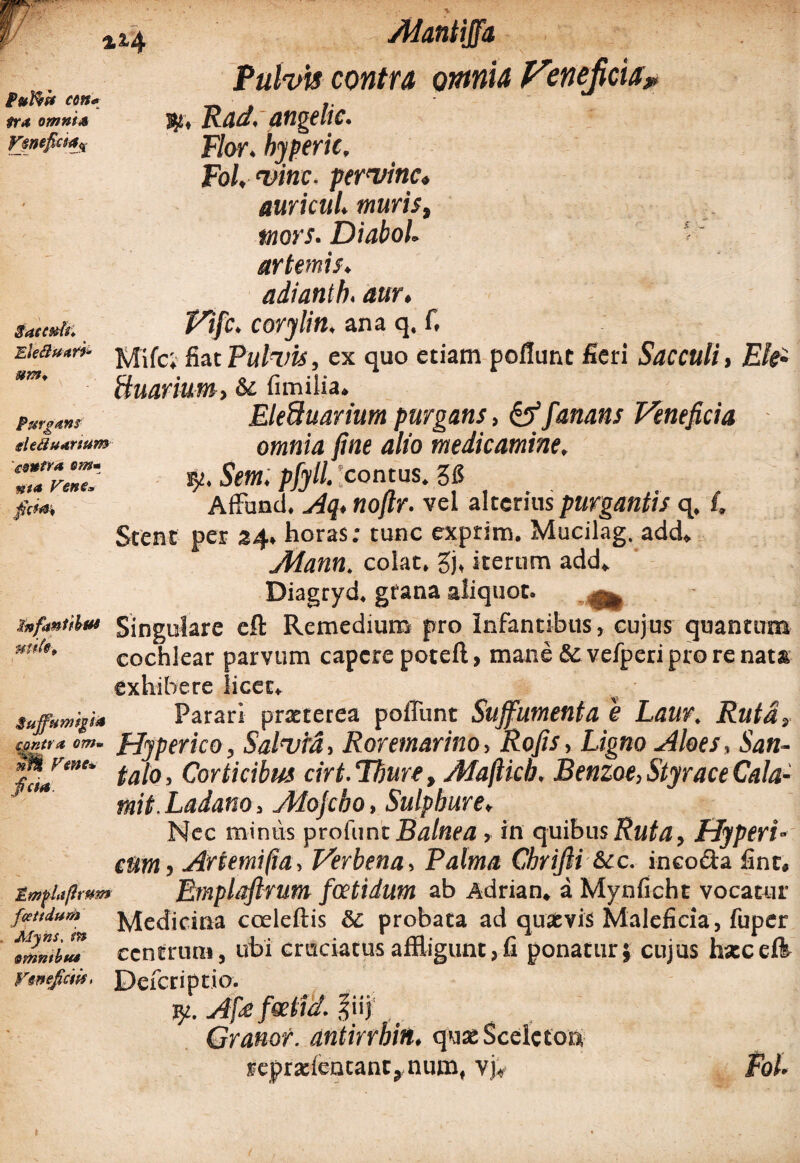 224 Mantiſſa
Pulvis contra omnia Veneficia.
Pulvis con-
tra omnia
Veneficia.
℞. Rad. angelic.
Flor. hyperic.
Fol. vinc. pervinc.
auricul. muris,
mors. Diabol.
artemis.
adianth. aur.
Viſc. corylin. ana q. ſ.
Sacculi.
Electuari-
um.
Miſc; fiat Pulvis, ex quo etiam poſſunt fieri Sacculi, Ele-
ctuarium, & ſimilia.
Purgans
electuarium
contra om-
nia Vene-
ficia.
Electuarium purgans, & ſanans Veneficia
omnia ſine alio medicamine.
℞. Sem. pſyll. contus. ʒß
Affund. Aq. noſtr. vel alterius purgantis q. ſ.
Stent per 24. horas: tunc exprim. Mucilag. add.
Mann. colat. ʒj. iterum add.
Diagryd. grana aliquot.
Infantibus
utile.
Singulare eſt Remedium pro Infantibus, cujus quantum
cochlear parvum capere poteſt, manè & veſperi pro re nata
exhibere licet.
Suffumigia
contra om-
nia Vene-
ficia.
Parari præterea poſſunt Suffumenta è Laur. Rutâ,
Hyperico, Salviâ, Roremarino, Roſis, Ligno Aloes, San-
talo, Corticibus cirt. Thure, Maſtich. Benzoe, Styrace Cala-
mit. Ladano, Moſcho, Sulphure.
Nec minùs proſunt Balnea, in quibus Ruta, Hyperi-
cum, Artemiſia, Verbena, Palma Chriſti &c. incocta ſint.
Emplaſtrum
fœtidum
Myns. in
omnibus
Veneficiis.
Emplaſtrum fœtidum ab Adrian. à Mynſicht vocatur
Medicina cœleſtis & probata ad quævis Maleficia, ſuper
centrum, ubi cruciatus affligunt, ſi ponatur; cujus hæc eſt
Deſcriptio.
℞. Aſæ fœtid. ℥iij
Granor. antirrhin. quæ Sceleton
repræſentant, num. vj.
Fol.